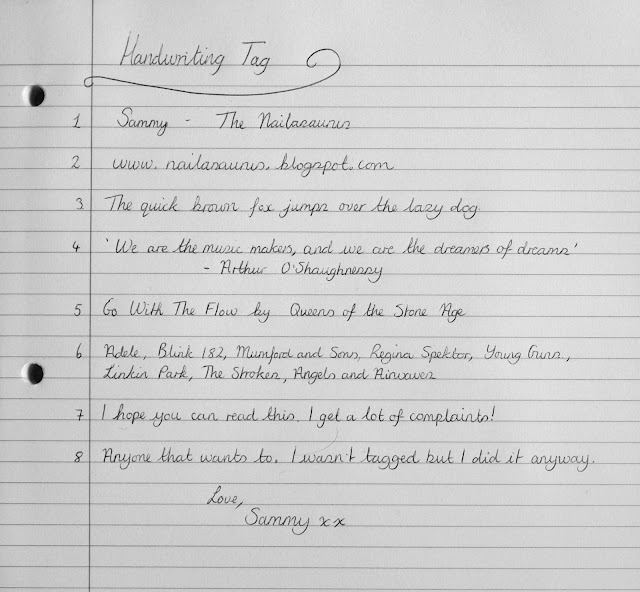 Handwriting Tag
1 Sammy - The Nailasaurus
2 www.nailasaurus.blogspot.com
3 The quick brown fox jumps over the lazy dog
4 'We are the music makers, and we are the dreamers of dreams'
- Arthur O'Shaughnessy
5 Go With The Flow by Queens of the Stone Age
6 Adele, Blink 182, Mumford and Sons, Regina Spektor, Young Guns,
Linkin Park, The Strokes, Angels and Airwaves
7 I hope you can read this. I get a lot of complaints!
8 Anyone that wants to. I wasn't tagged but I did it anyway.
Love,
Sammy xx